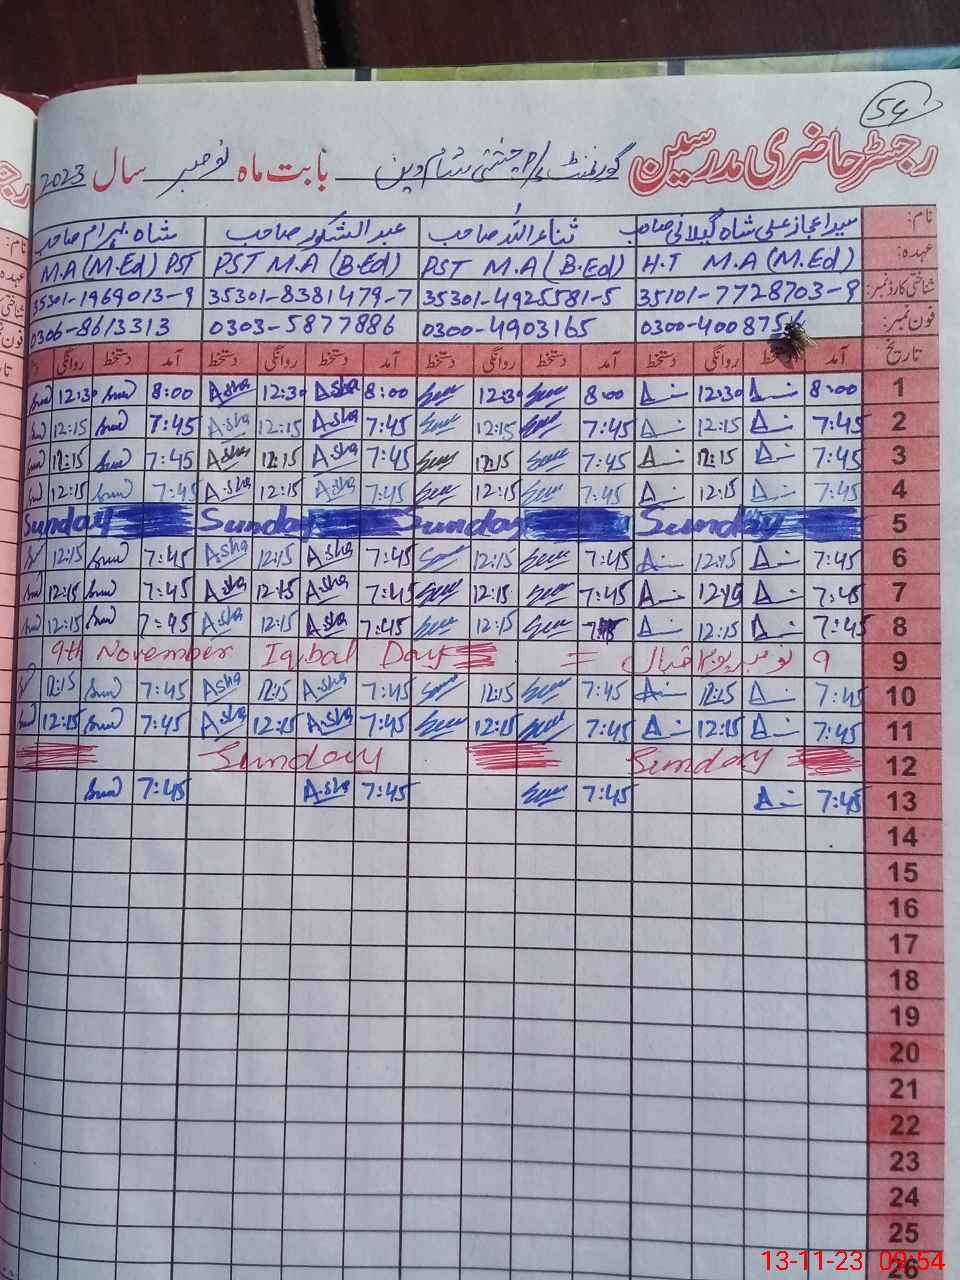 54
رجسٹر حاضری مدرسین گورنمنٹ بابت ماہ نومبر سال 2023
نام: سید اعجاز علی شاہ گیلانی صاحب ثناء اللہ صاحب عبدالشکور صاحب شاہ بہرام صاحب
عہدہ: H.T M.A (M.Ed) PST M.A (B.Ed) PST M.A (B.Ed) M.A (M.Ed) PST
شناختی کارڈ نمبر: 35101-7728703-9 35301-4925581-5 35301-8381479-7 35301-1969013-9
فون نمبر: 0300-400875 0300-4903165 0303-5877886 0306-8613313
تاریخ آمد دستخط روانگی دستخط آمد دستخط روانگی دستخط آمد دستخط روانگی دستخط آمد دستخط روانگی
1 8:00 12:30 8:00 12:30 8:00 Asha 12:30 Asha 8:00 12:30
2 7:45 12:15 7:45 12:15 7:45 Asha 12:15 Asha 7:45 12:15
3 7:45 12:15 7:45 12:15 7:45 Asha 12:15 Asha 7:45 12:15
4 7:45 12:15 7:45 12:15 7:45 Asha 12:15 Asha 7:45 12:15
5 Sunday Sunday Sunday Sunday
6 7:45 12:15 7:45 12:15 7:45 Asha 12:15 Asha 7:45 12:15
7 7:45 12:15 7:45 12:15 7:45 Asha 12:15 Asha 7:45 12:15
8 7:45 12:15 12:15 7:45 Asha 12:15 Asha 7:45 12:15
9 ۹ نومبر یوم اقبال = 9th November Iqbal Day
10 7:45 12:15 7:45 12:15 7:45 Asha 12:15 Asha 7:45 12:15
11 7:45 12:15 7:45 12:15 7:45 Asha 12:15 Asha 7:45 12:15
12 Sunday Sunday
13 7:45 7:45 7:45 Asha 7:45
14
15
16
17
18
19
20
21
22
23
24
25
26
13-11-23 09:54